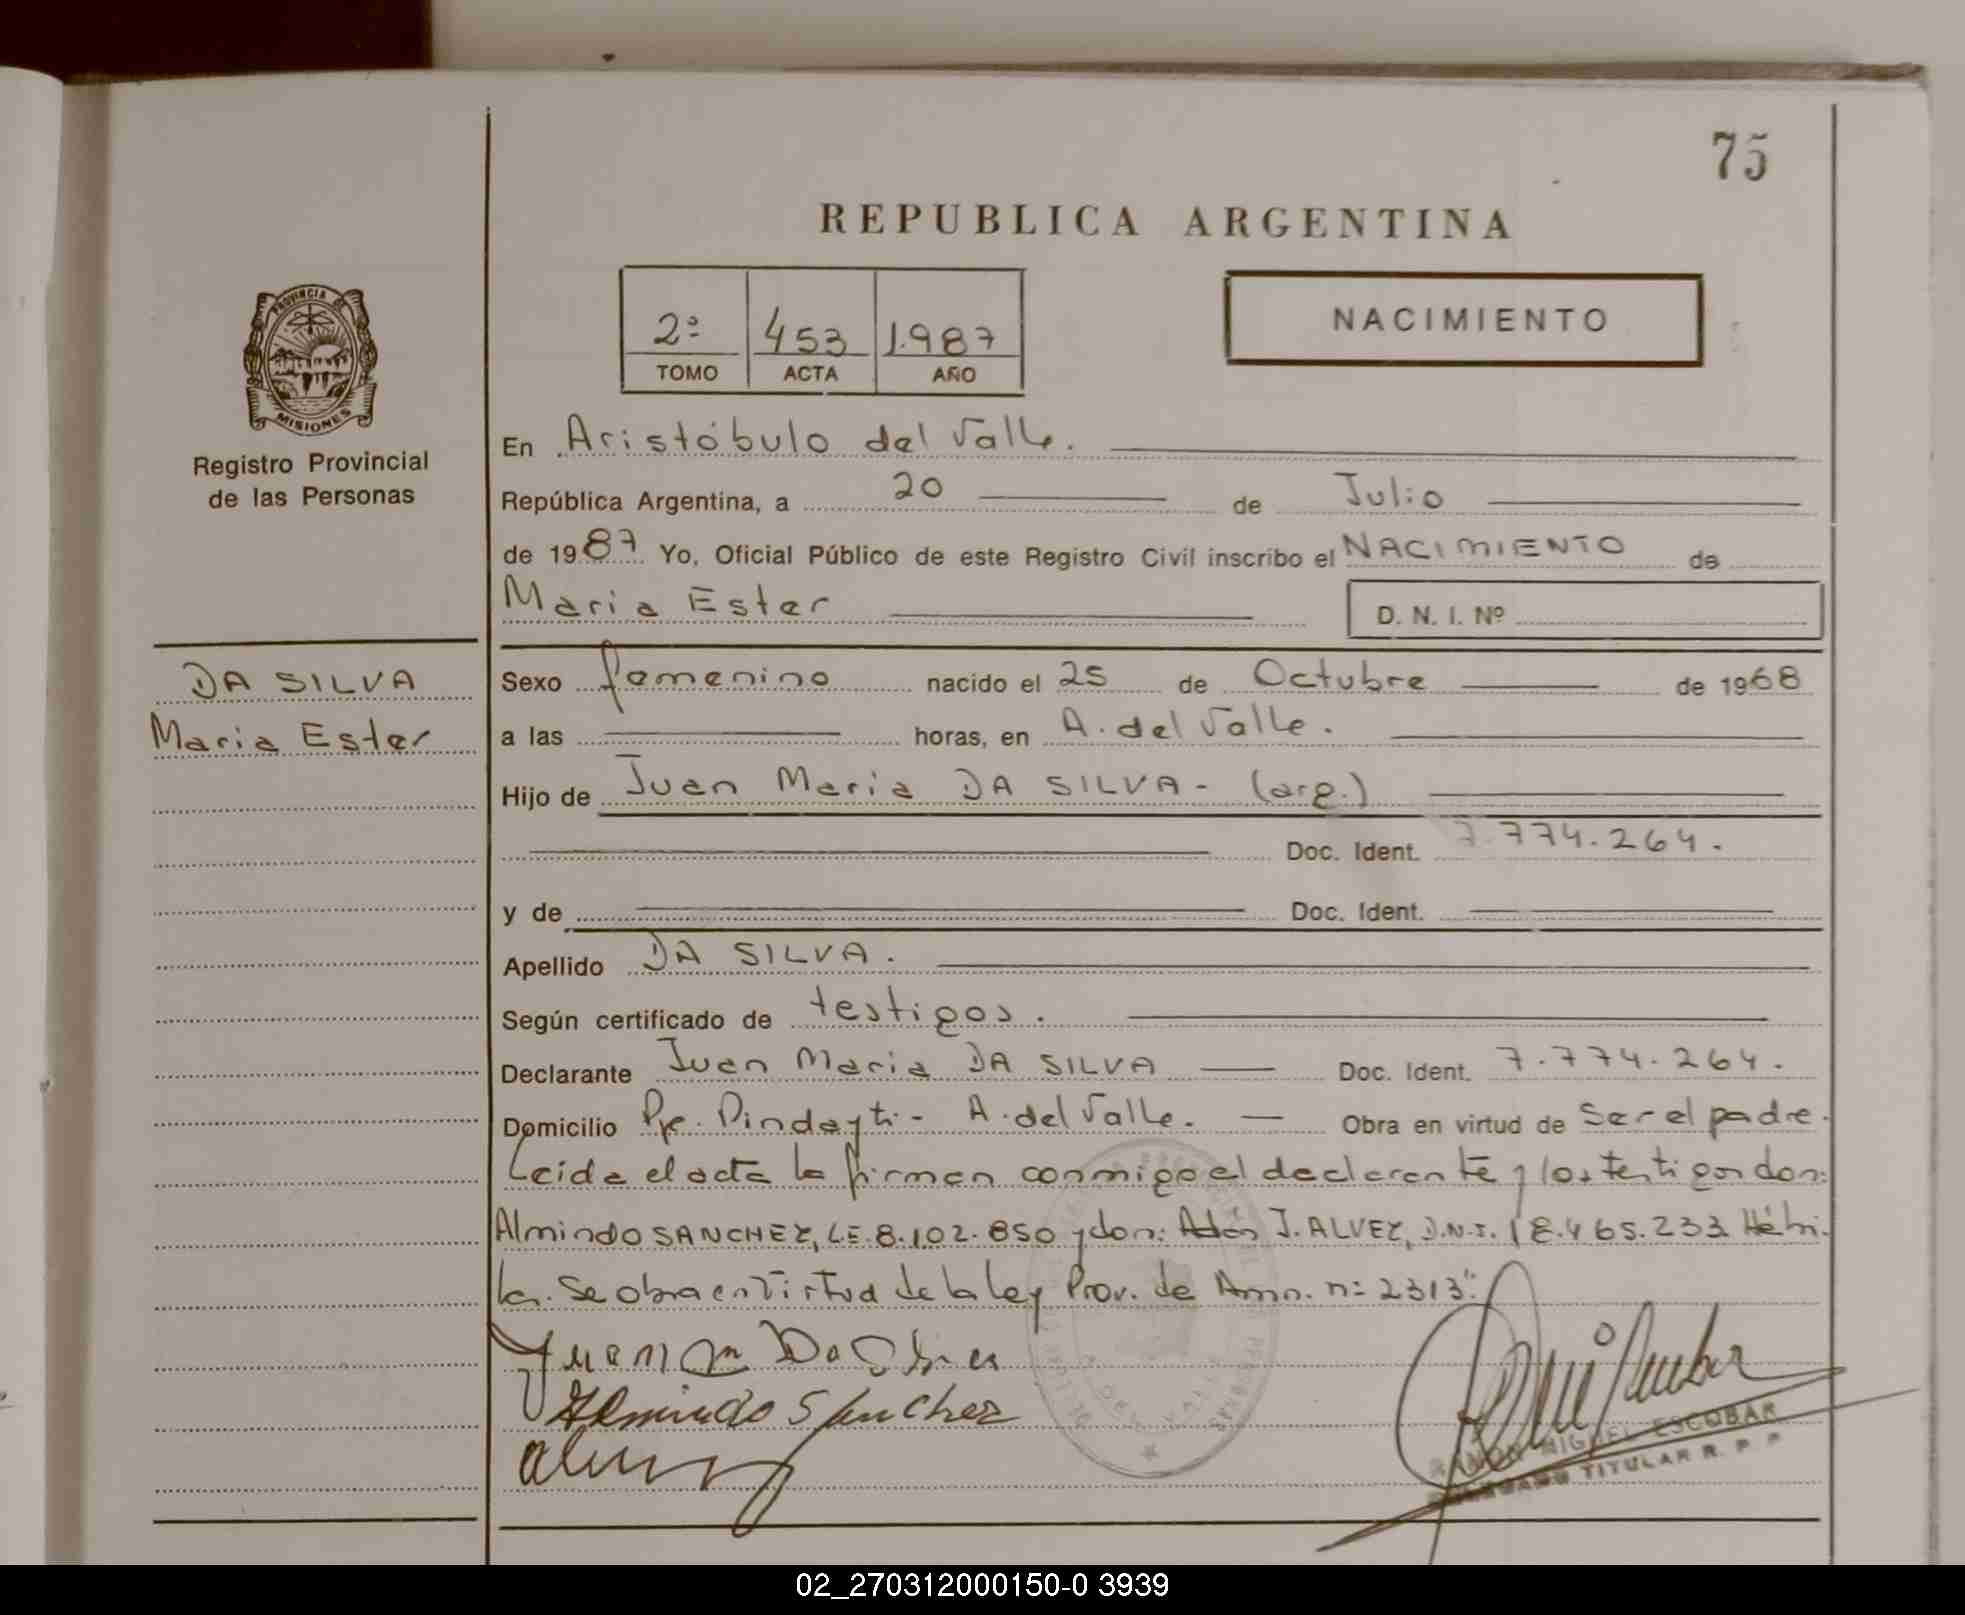 75
REPUBLICA ARGENTINA
2º 453 1.987
TOMO ACTA AÑO
NACIMIENTO
PROVINCIA DE
MISIONES
Registro Provincial
de las Personas
DA SILVA
Maria Ester
En Aristóbulo del Valle.
República Argentina, a 20 de Julio
de 1987 Yo, Oficial Público de este Registro Civil inscribo el NACIMIENTO de
Maria Ester D. N. I. Nº
Sexo femenino nacido el 25 de Octubre de 1968
a las horas, en A. del Valle.
Hijo de Juan Maria DA SILVA - (arg.)
Doc. Ident. 7.774.264.
y de Doc. Ident.
Apellido DA SILVA.
Según certificado de testigos.
Declarante Juan Maria DA SILVA Doc. Ident. 7.774.264.
Domicilio Pje. Pindayti - A. del Valle. Obra en virtud de Ser el padre.
Leida el acta la firman conmigo el declarante y los testigos don:
Almindo SANCHEZ, L.E. 8.102.850 y don: Adán J. ALVEZ, D.N.I. 18.465.233 Hábi-
les. Se obra en Virtud de la Ley Prov. de Amn. nº 2313".
Juan M Da Silva
Almindo Sanchez
RAMON MIGUEL ESCOBAR
DELEGADO TITULAR R. P. P.
02_270312000150-0 3939